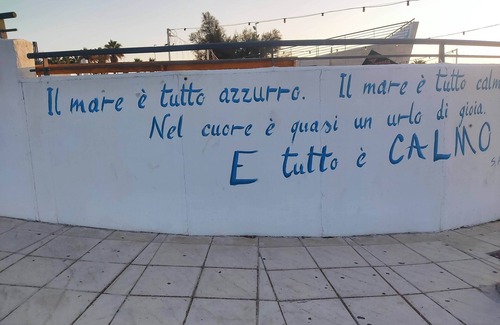 Il mare è tutto azzurro. Il mare è tutto calm
Nel cuore è quasi un urlo di gioia.
E tutto è CALMO
S.